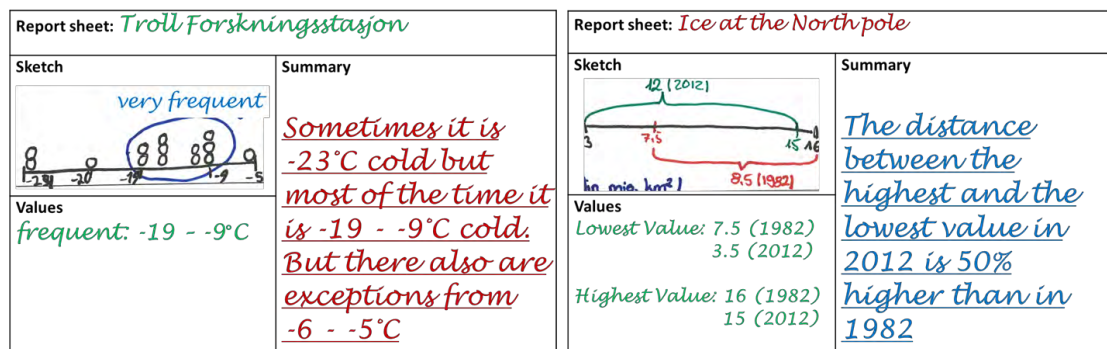 Report sheet: Troll Forskningsstasjon
Sketch
very frequent
-23 -20 -19 -9 -5
Values
frequent: -19 - -9°C
Summary
Sometimes it is
-23°C cold but
most of the time it
is -19 - -9°C cold.
But there also are
exceptions from
-6 - -5°C
Report sheet: Ice at the North pole
Sketch
12 (2012)
3 7,5 15 16
8.5 (1982)
in mio. km²)
Values
Lowest Value: 7.5 (1982)
3.5 (2012)
Highest Value: 16 (1982)
15 (2012)
Summary
The distance
between the
highest and the
lowest value in
2012 is 50%
higher than in
1982